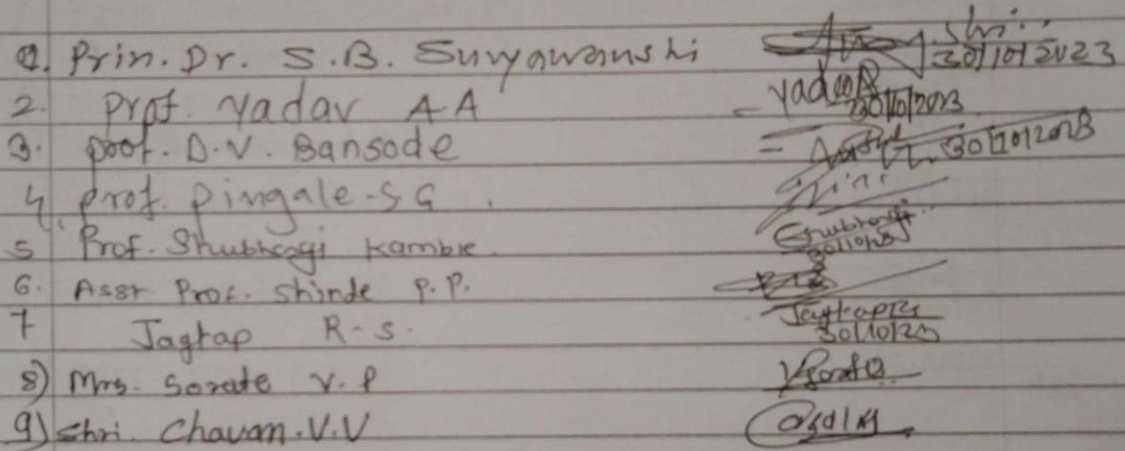 1. Prin. Dr. S.B. Suryawanshi 30/10/2023
2. Prof. Yadav A A - Yadav 30/10/2023
3. Prof. D.V. Bansode = 30/10/2023
4. Prof. Pingale.S G.
5 Prof. Shubhangi Kamble. Shubhangi 30/10/23
6. Asst. Prof. Shinde P.P.
7 Jagtap R.S. JagtapRs 30/10/23
8) Mrs. Sorate V.P VSorate
9) Shri. Chavan.V.V